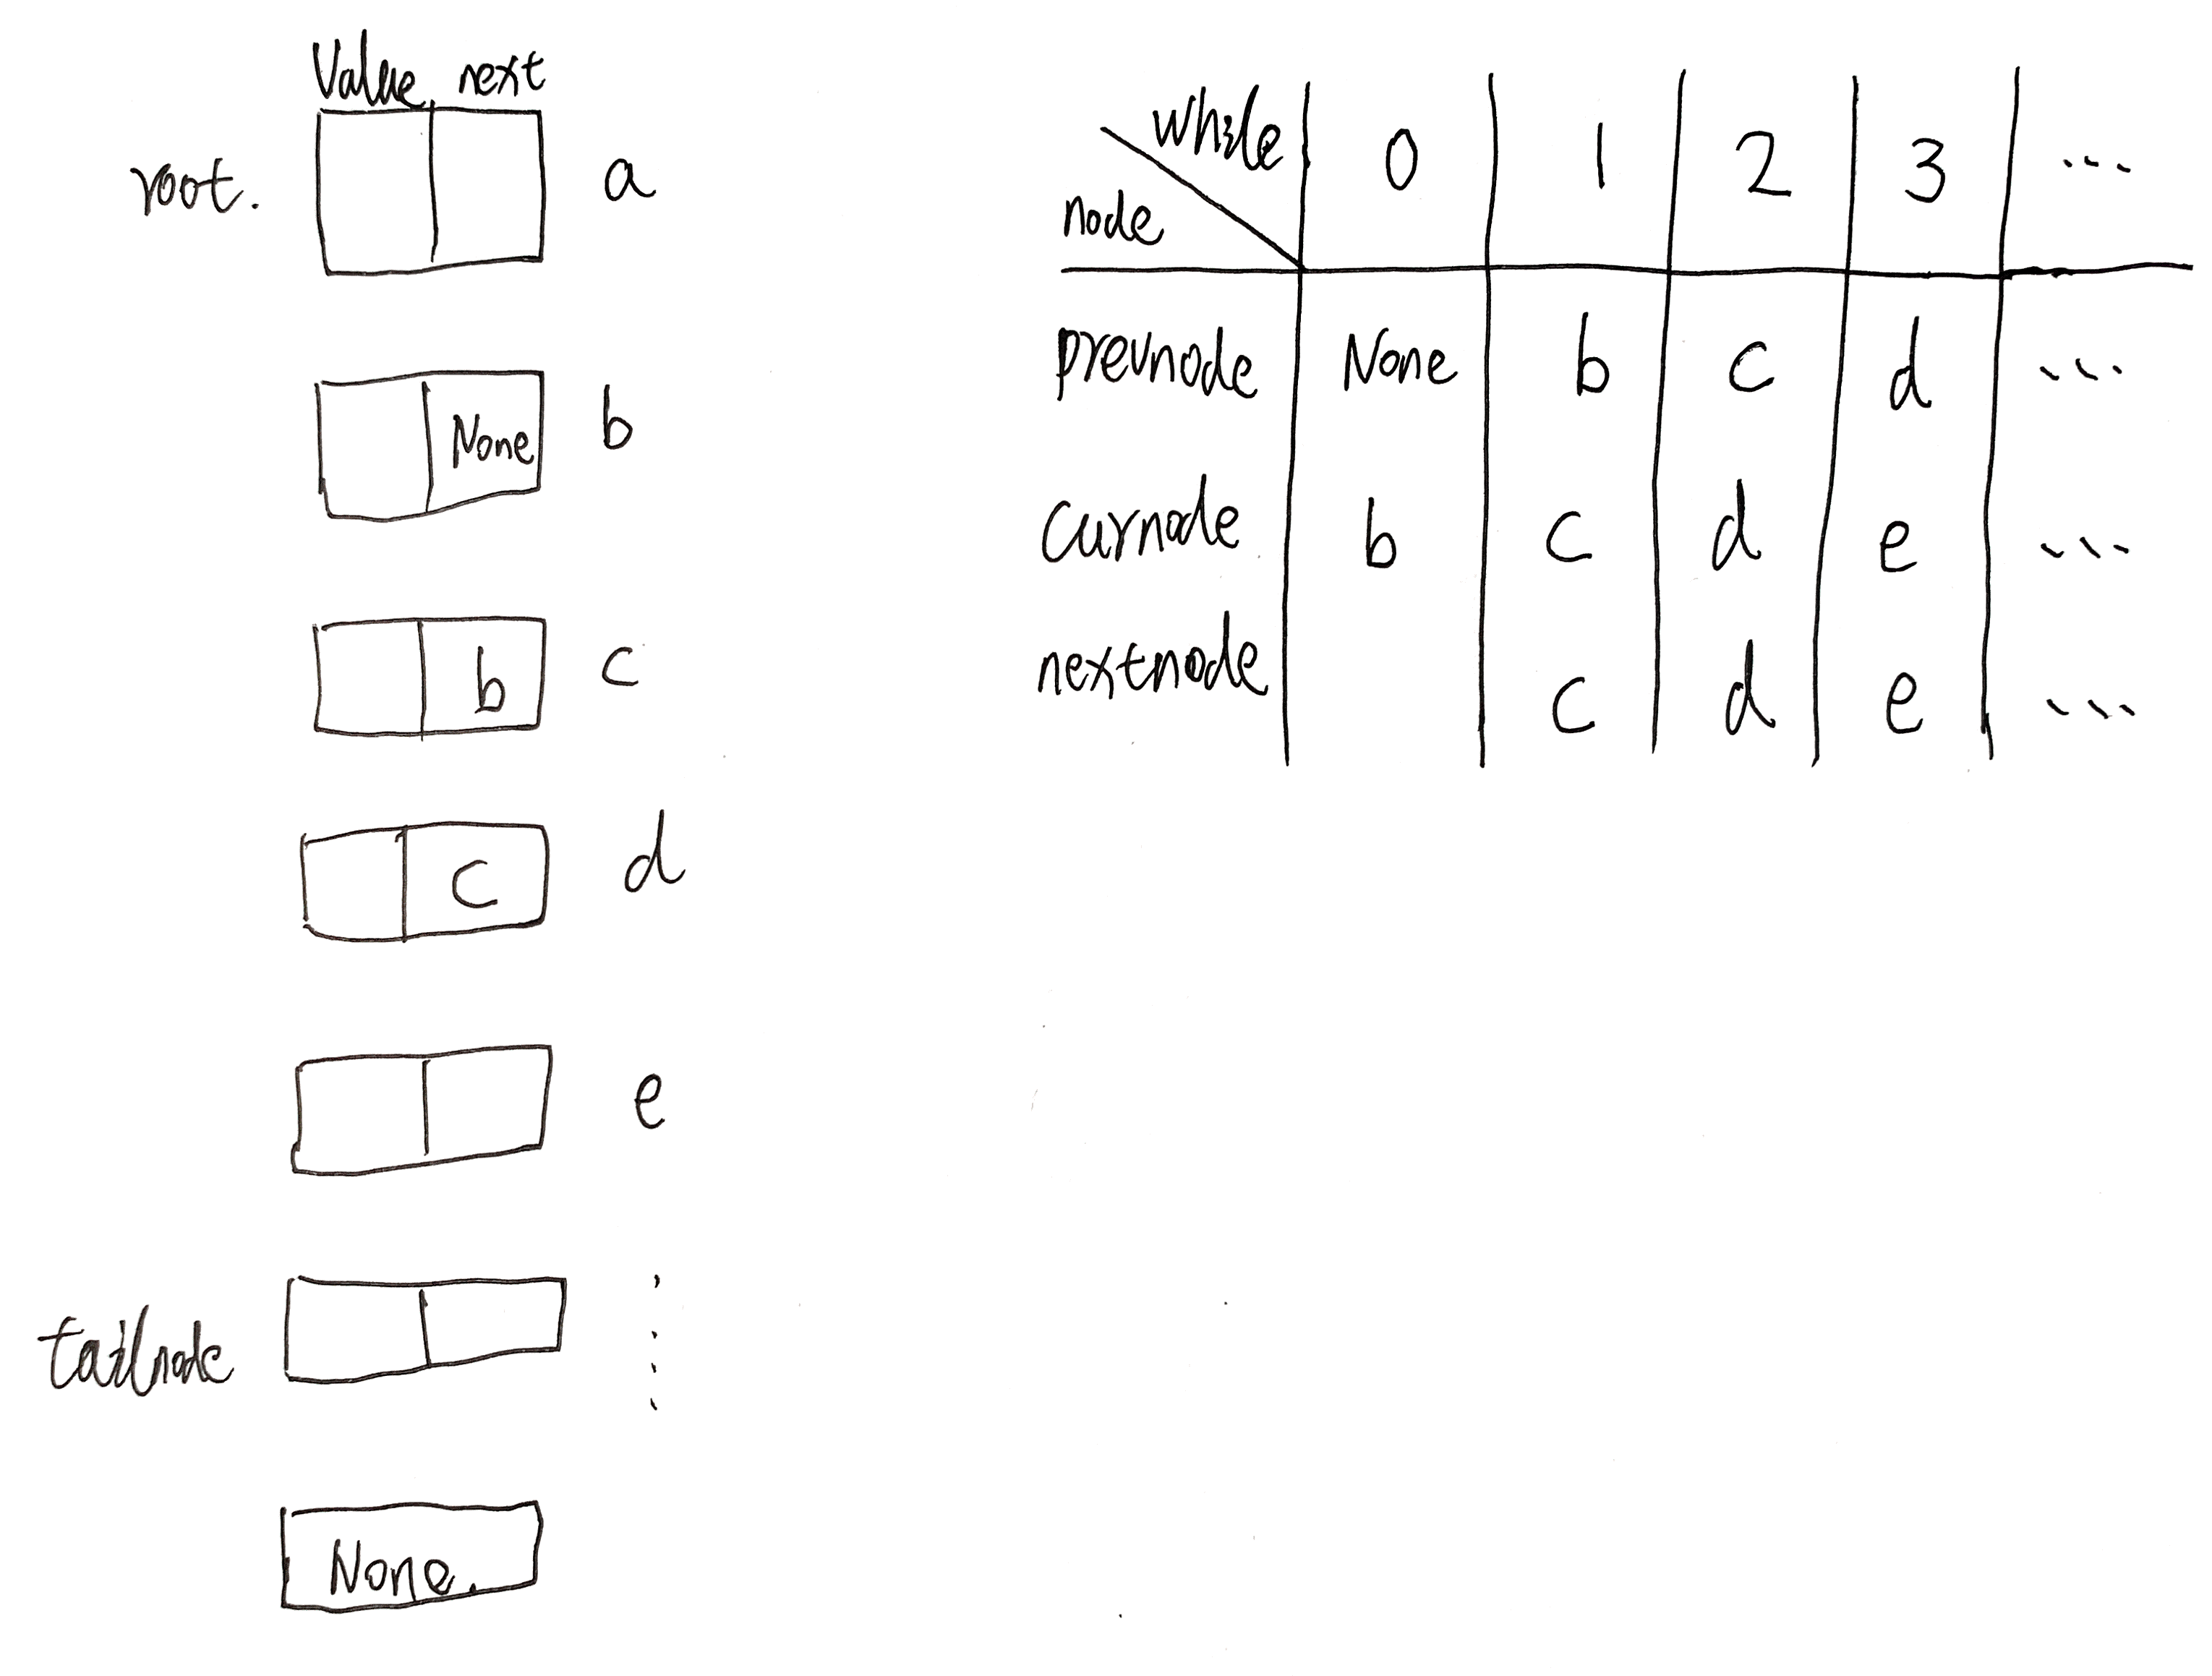 Value next
root. a
None b
b c
c d
e
tailnode
None.
while 0 1 2 3 ...
node
prevnode None b c d ...
curnode b c d e ...
nextnode c d e ...